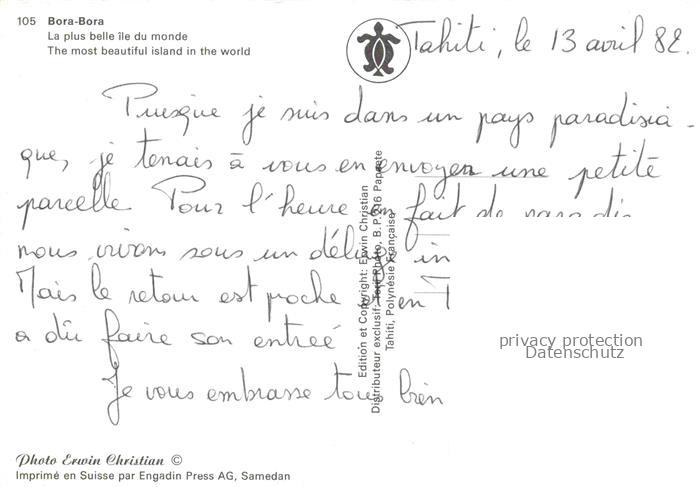 105 Bora-Bora
La plus belle île du monde
The most beautiful island in the world
Tahiti, le 13 avril 82.
Puisque je suis dans un pays paradisia-
que, je tenais à vous en envoyer une petite
parcelle. Pour l'heure en fait de paradis
nous vivons sous un déluge in
Mais le retour est proche et en
a dû faire son entrée
Je vous embrasse tous bien
Edition et Copyright: Erwin Christian
Distributeur exclusif: Tahiti, B.P. 316 Papeete
Tahiti, Polynésie Française
privacy protection
Datenschutz
Photo Erwin Christian ©
Imprimé en Suisse par Engadin Press AG, Samedan